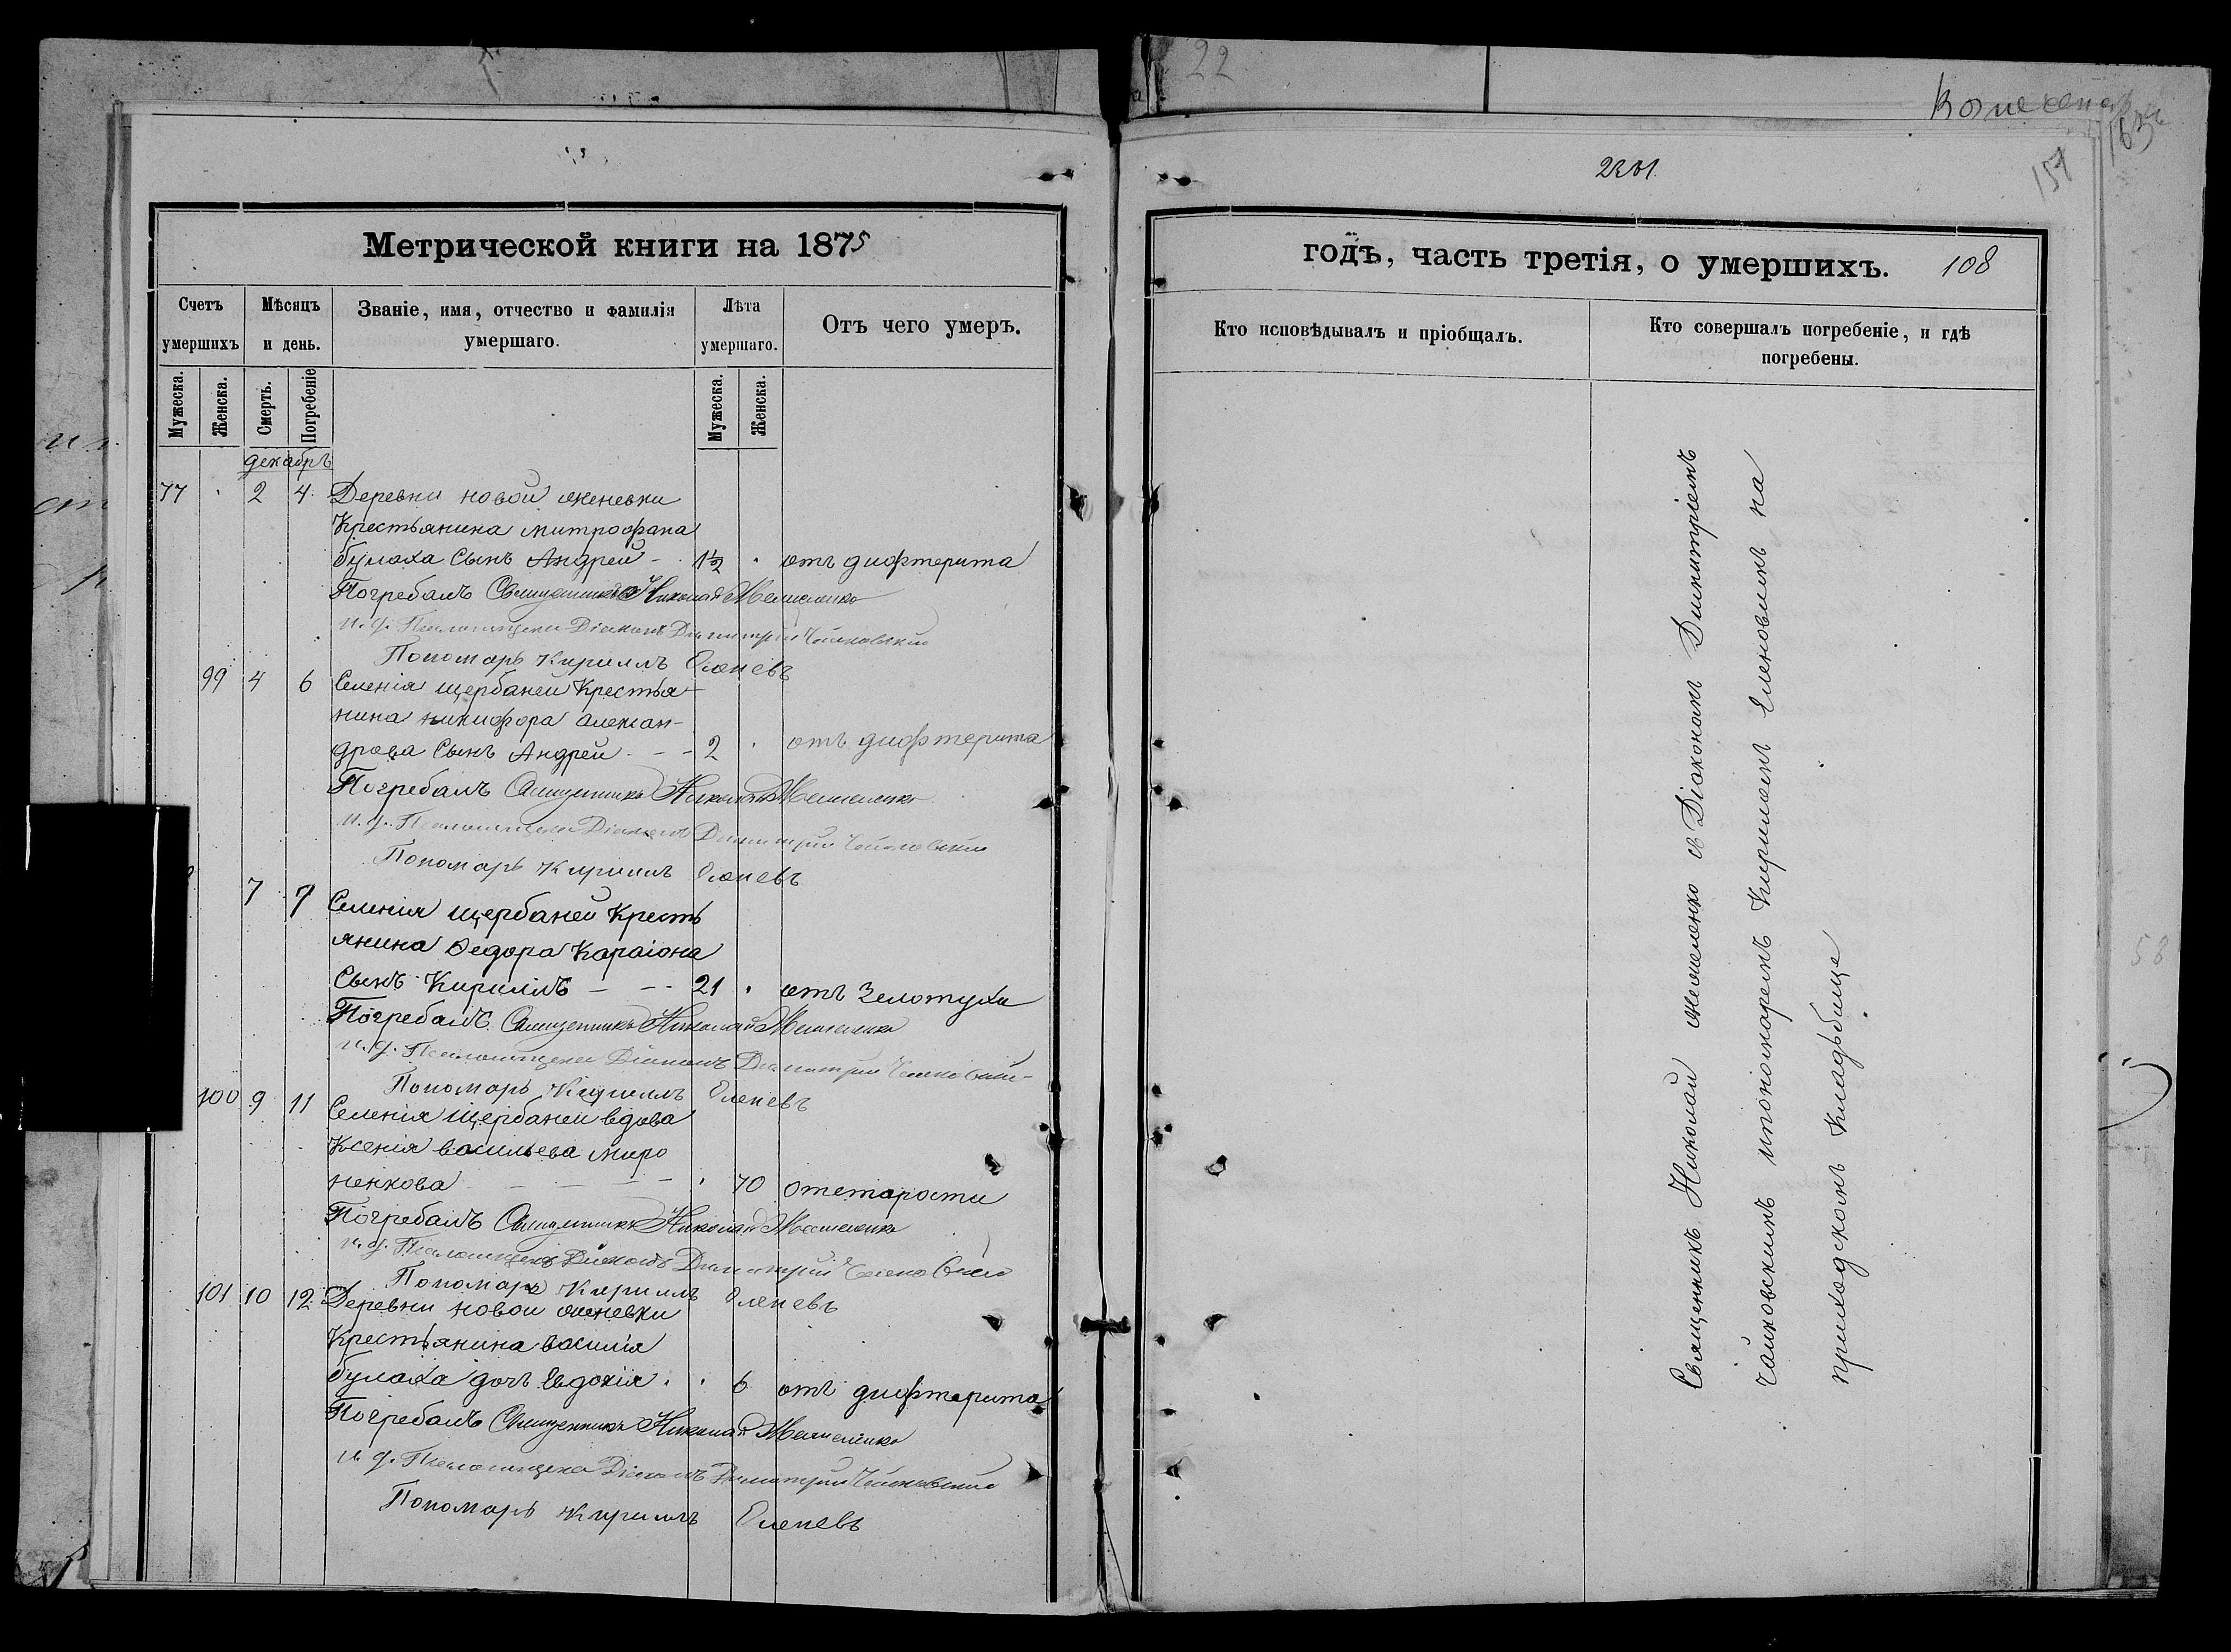 22
157
Метрической книги на 1875
Счетъ умершихъ
Мѣсяцъ и день.
Званіе, имя, отчество и фамилія умершаго.
Лѣта умершаго.
Отъ чего умеръ.
Мужеска. Женска. Смерть. Погребеніе Мужеска. Женска.
декабрь
77 2 4 Деревни новой
Крестьянина митрофана
булаха Сынъ Андрей - 1½ отъ дифтерита
Погребалъ Священникъ Николай
и. д. Псаломщика Діаконъ Димитрій Чайковскій
Пономарь Кириллъ Еленевъ
99 4 6 Селенія щербаней Крестья-
нина никифора алексан-
дрова Сынъ Андрей - - 2 отъ дифтерита
Погребалъ Священникъ Николай
и. д. Псаломщика Діаконъ Димитрій Чайковскій
Пономарь Кириллъ Еленевъ
7 7 Селенія щербаней Кресть
янина Ѳедора Караіона
Сынъ Кириллъ - - - 21 отъ Золотухи
Погребалъ Священникъ Николай
и. д. Псаломщика Діаконъ Димитрій Чайковскій
Пономарь Кириллъ Еленевъ
100 9 11 Селенія щербаней вдова
Ксенія васильева миро
ненкова - - - - 70 отстарости
Погребалъ Священникъ Николай
и. д. Псаломщика Діаконъ Димитрій Чайковскій
Пономарь Кириллъ Еленевъ
101 10 12 Деревни новой
Крестьянина василія
булаха дочь Евдокія 6 отъ дифтерита
Погребалъ Священникъ Николай
и. д. Псаломщика Діаконъ Димитрій Чайковскій
Пономарь Кириллъ Еленевъ
годъ, часть третія, о умершихъ. 108
Кто исповѣдывалъ и пріобщалъ.
Кто совершалъ погребеніе, и гдѣ погребены.
Священникъ Николай съ Діакономъ Димитріемъ
Чайковскимъ ипономаремъ Кирилломъ Еленовымъ на
приходскомъ Кладьбище
58